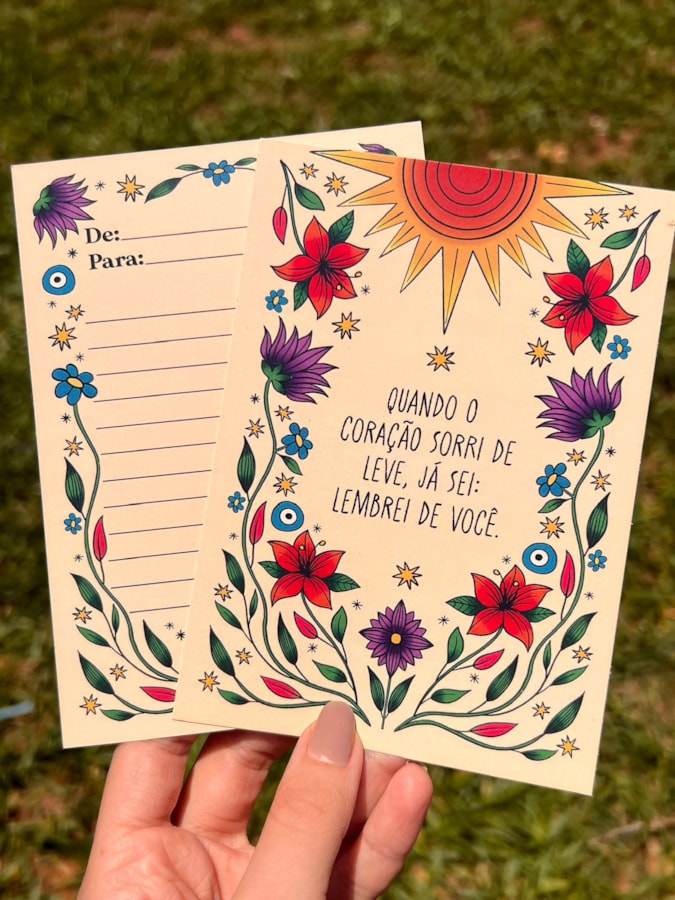 De:
Para:
QUANDO O
CORAÇÃO SORRI DE
LEVE, JÁ SEI:
LEMBREI DE VOCÊ.